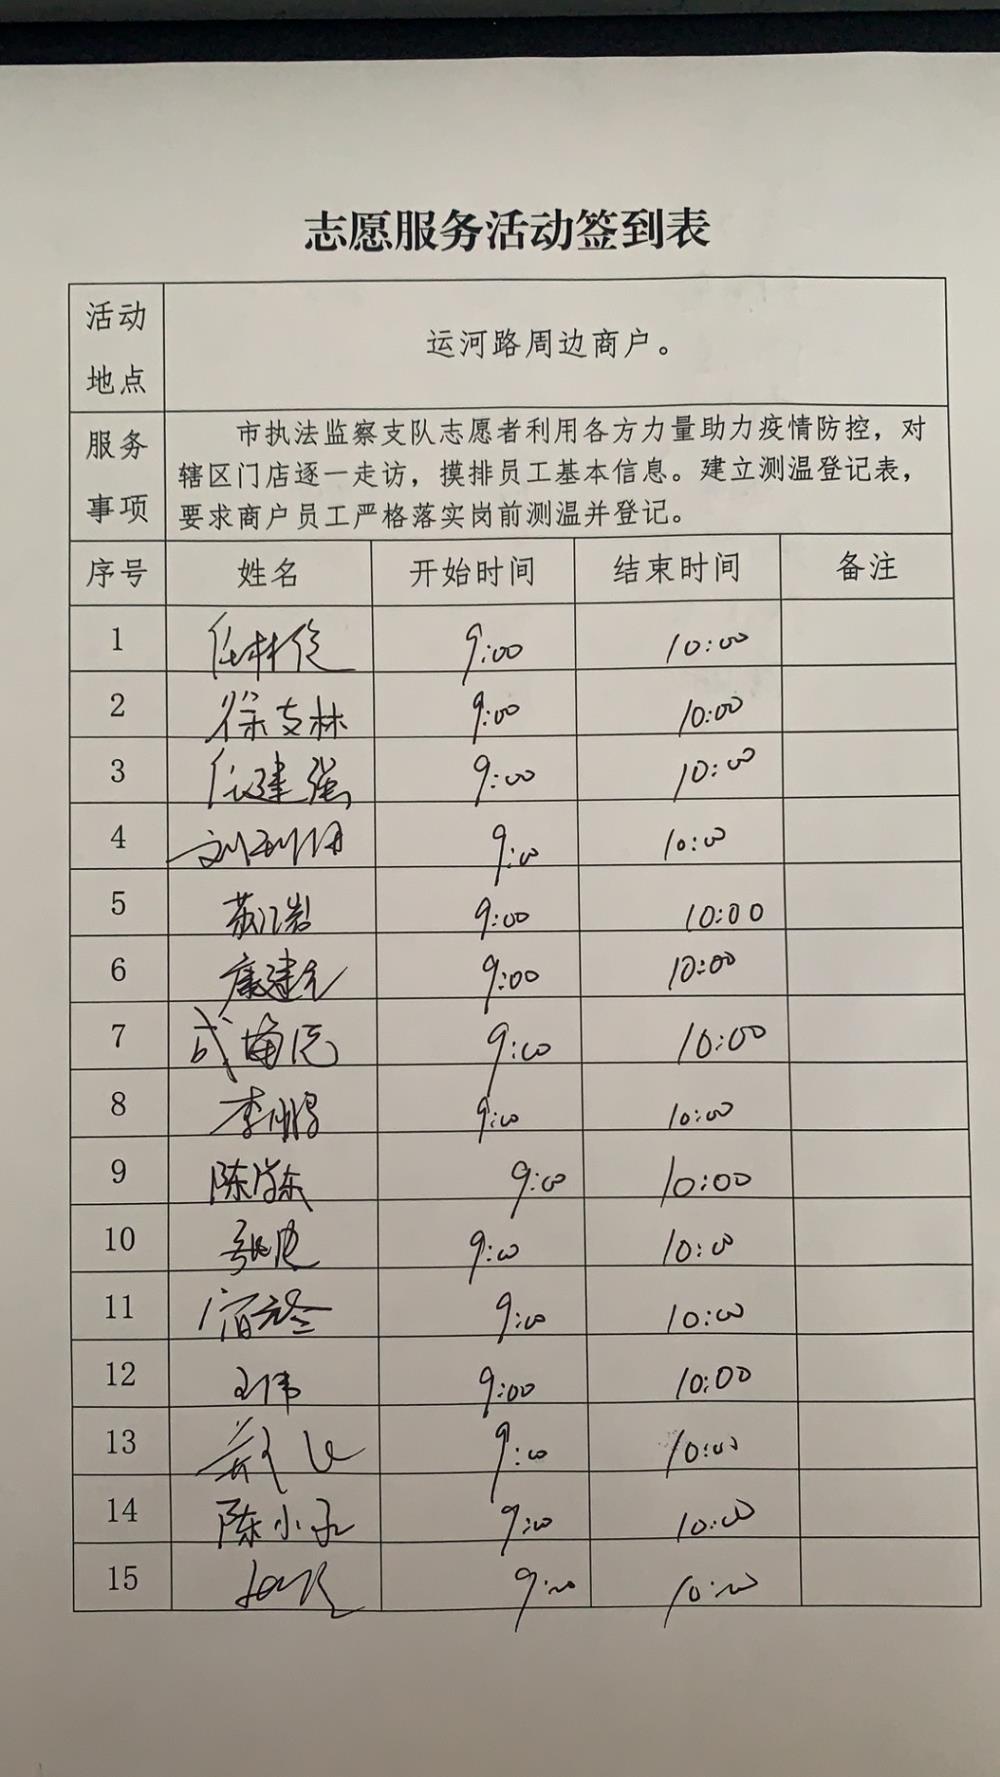 志愿服务活动签到表
活动地点 运河路周边商户。
服务事项 市执法监察支队志愿者利用各方力量助力疫情防控，对
辖区门店逐一走访，摸排员工基本信息。建立测温登记表，
要求商户员工严格落实岗前测温并登记。
序号 姓名 开始时间 结束时间 备注
1 9:00 10:00
2 徐支林 9:00 10:00
3 任建强 9:00 10:00
4 9:00 10:00
5 9:00 10:00
6 康建 9:00 10:00
7 武 9:00 10:00
8 李鹏 9:00 10:00
9 陈 东 9:00 10:00
10 9:00 10:00
11 9:00 10:00
12 王伟 9:00 10:00
13 9:00 10:00
14 陈小 9:00 10:00
15 9:00 10:00